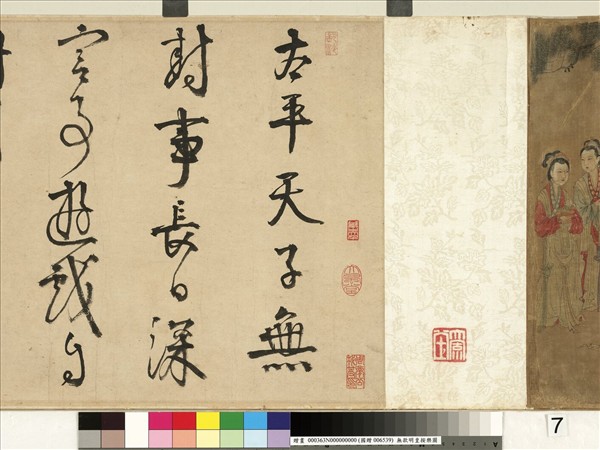 太平天子無
封事長日深
宮事遊戲自
繪畫 000363N000000000 (國贈 006539) 無款明皇按樂圖
7